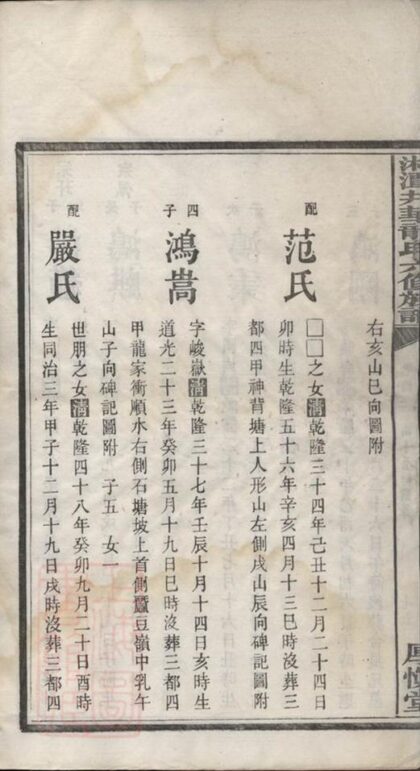 湘潭井龍氏六修族譜
右亥山巳向圖附
配
范氏
□□之女清乾隆三十四年己丑十二月二十四日
卯時生乾隆五十六年辛亥四月十三巳時沒葬三
都四甲神背塘上人形山左側戌山辰向碑記圖附
四子
鴻嵩
字峻嶽清乾隆三十七年壬辰十月十四日亥時生
道光二十三年癸卯五月十九日巳時沒葬三都四
甲龍家衝順水右側石塘坡上首側蠶豆嶺中乳午
山子向碑記圖附 子五 女一
配
嚴氏
世朋之女清乾隆四十八年癸卯九月二十日酉時
生同治三年甲子十二月十九日戌時沒葬三都四